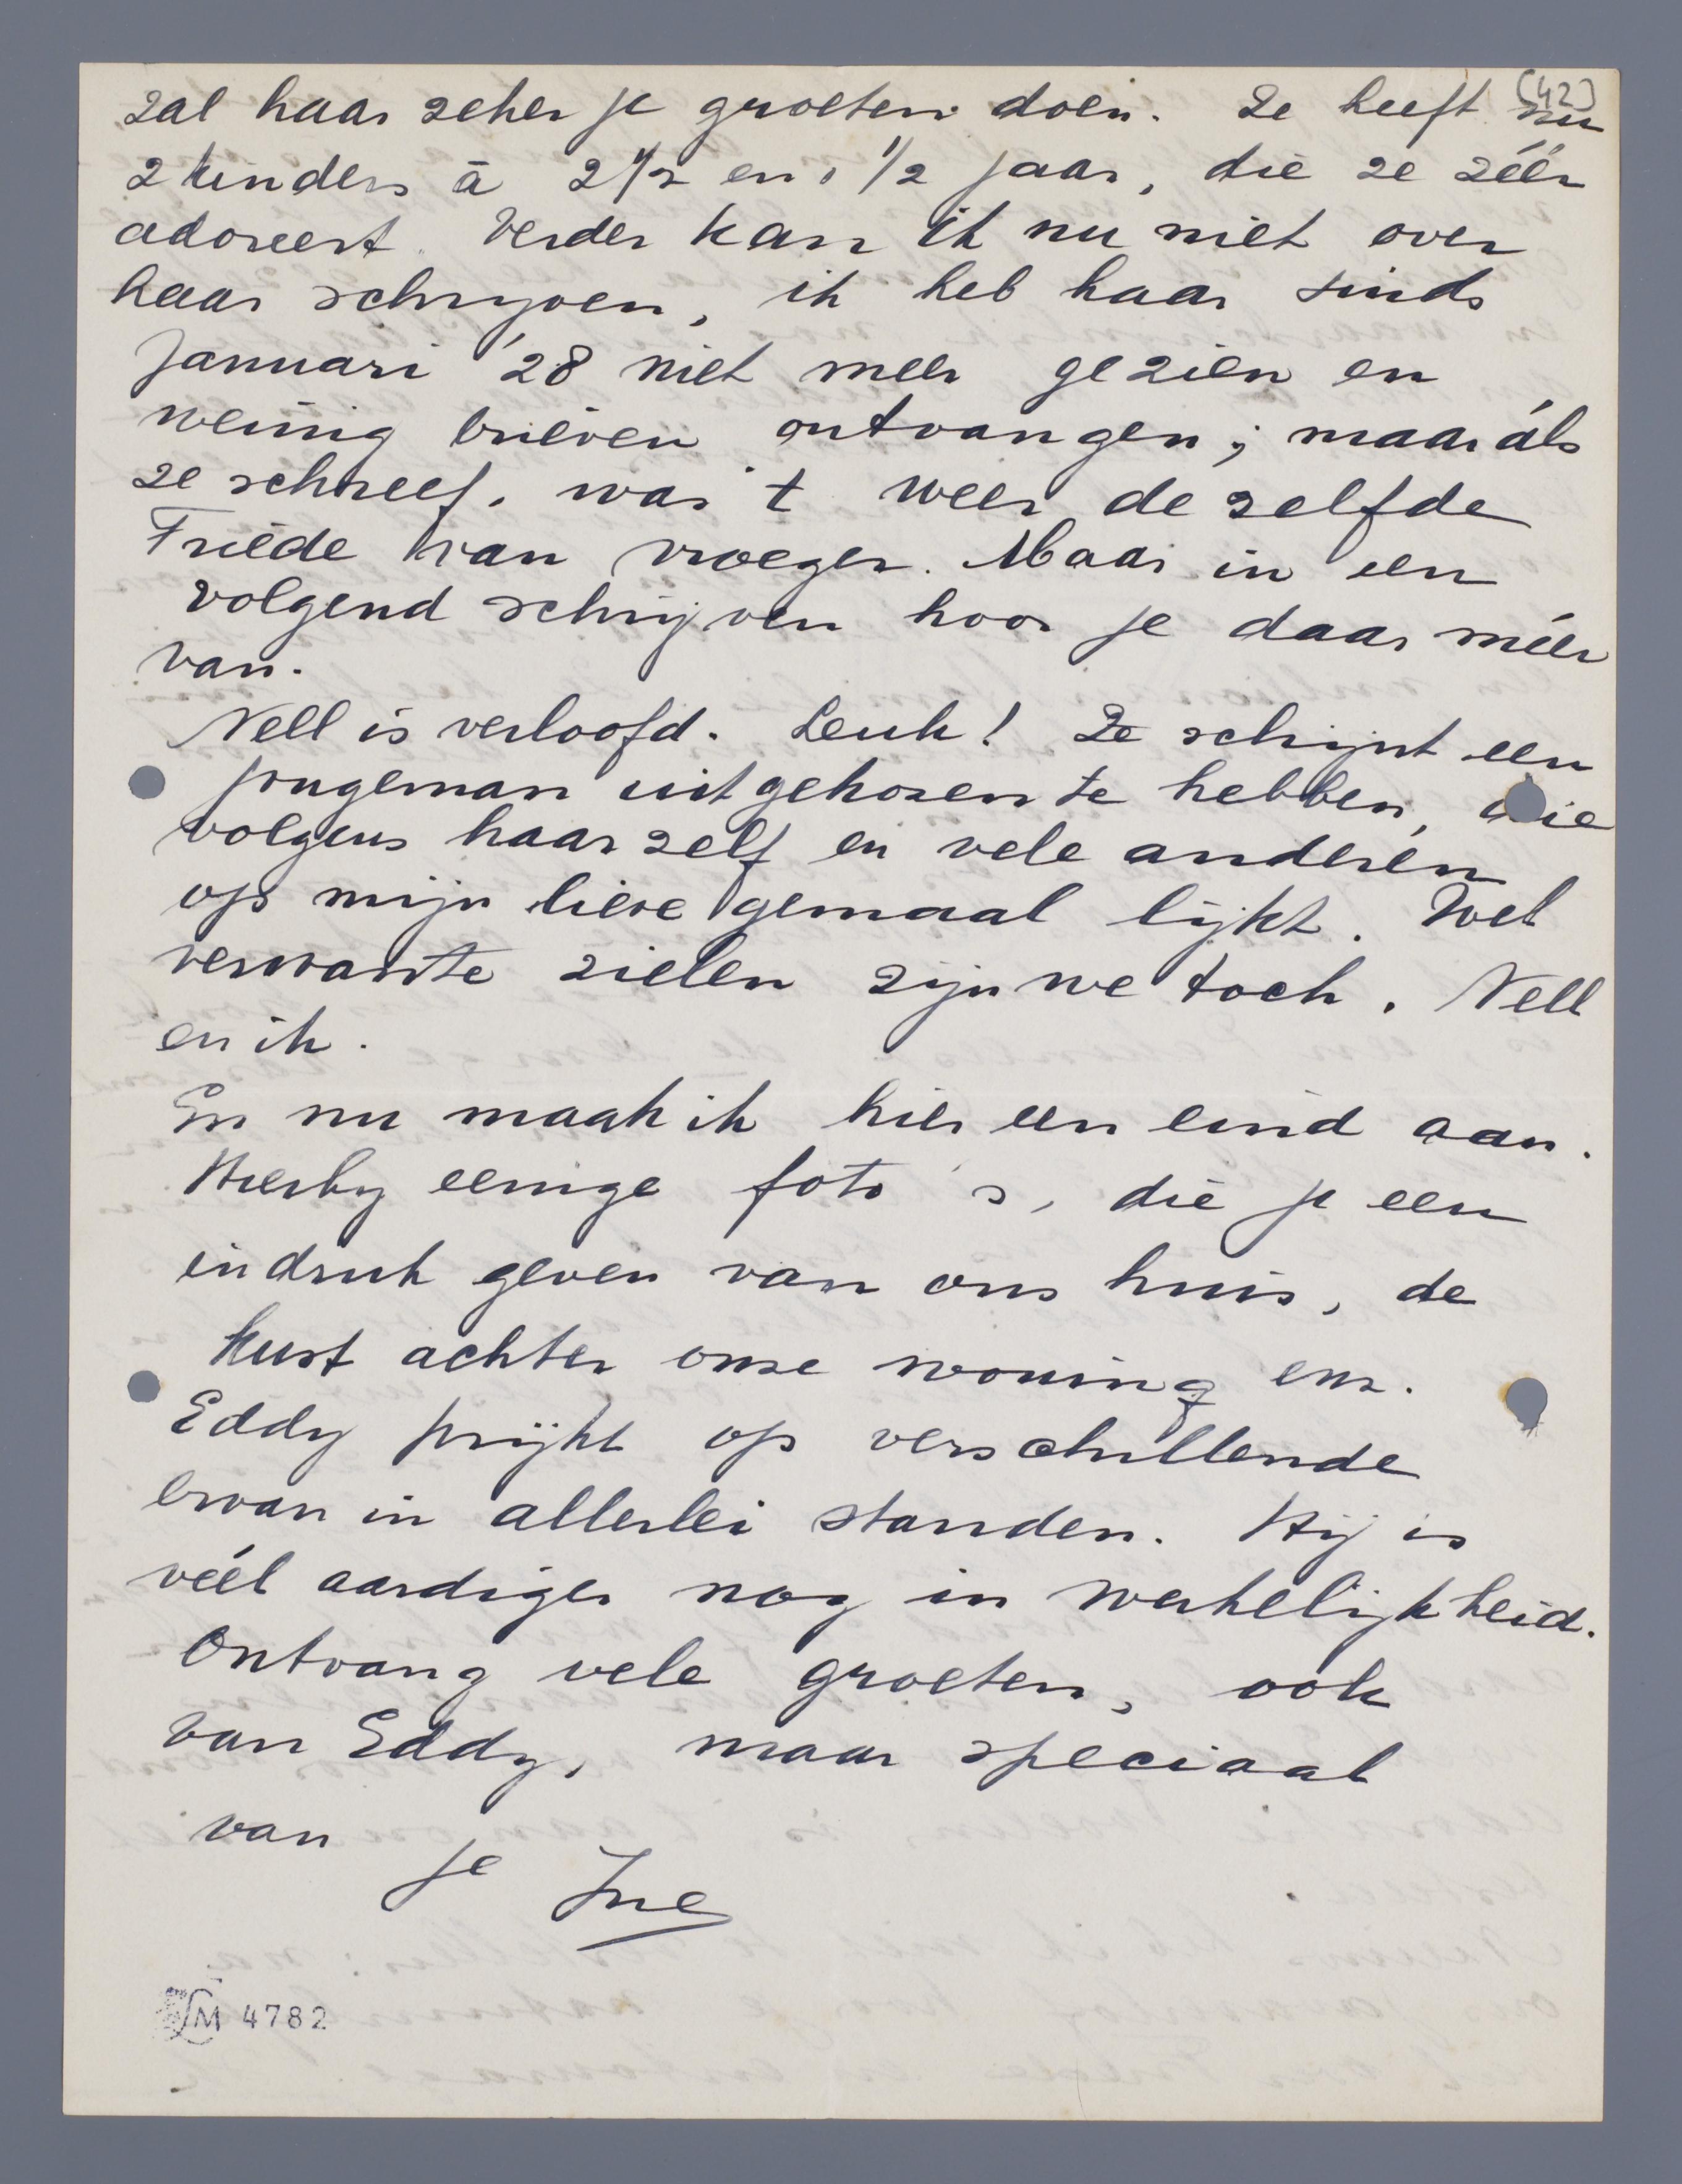 (42)
zal haar zeker je groeten doen. Ze heeft nu
2 kinders à 2 1/2 en 1 1/2 jaar, die ze zéér
adoreert. Verder kan ik nu niet over
haar schrijven, ik heb haar sinds
Januari '28 niet meer gezien en
weinig brieven ontvangen; maar áls
ze schreef, was 't weer dezelfde
Friede van vroeger. Maar in een
volgend schrijven hoor je daar méér
van.
Nell is verloofd. Leuk! Ze schijnt een
jongeman uitgekozen te hebben, die
volgens haar zelf en vele anderen
op mijn lieve gemaal lijkt. Wel
verwante zielen zijn we toch, Nell
en ik.
En nu maak ik hier een eind aan.
Hierby eenige foto's, die je een
indruk geven van ons huis, de
kust achter onze woning enz.
Eddy prijkt op verschillende
ervan in allerlei standen. Hij is
véél aardiger nog in werkelijkheid.
Ontvang vele groeten, ook
van Eddy, maar speciaal
van
je Ine
LM 4782